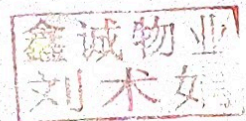 鑫诚物业
刘术女